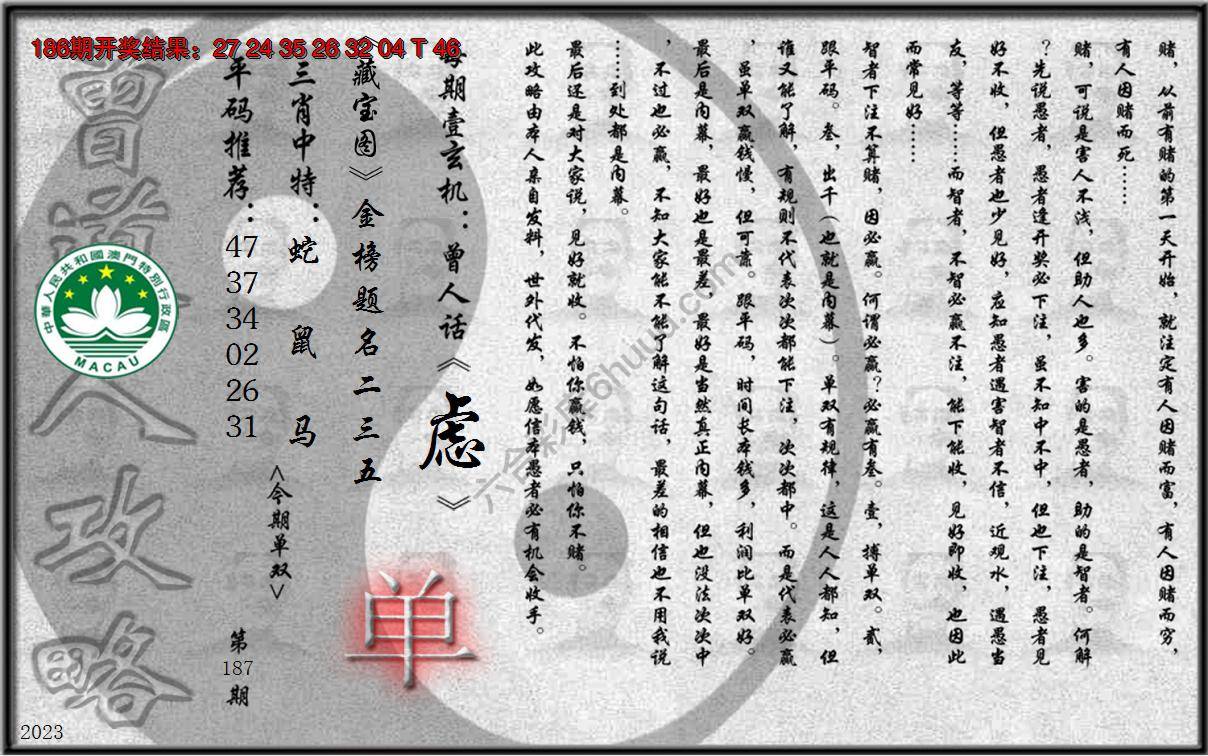 186期开奖结果：27 24 35 26 32 04 T 46
赌，从前有赌的第一天开始，就注定有人因赌而富，有人因赌而穷，
有人因赌而死……
赌，可说是害人不浅，但助人也多。害的是愚者，助的是智者。何解
？先说愚者，愚者逢开奖必下注，虽不知中不中，但也下注，愚者见
好不收，但愚者也少见好，应知愚者遇害智者不信，近观水，遇愚当
友，等等……而智者，不智必赢不注，能下能收，见好即收，也因此
而常见好……
智者下注不算赌，因必赢。何谓必赢？必赢有叁。壹，搏单双。贰，
跟平码。叁，出千（也就是内幕）。单双有规律，这是人人都知，但
谁又能了解，有规则不代表次次都能下注，次次都中。而是代表必赢
，虽单双赢钱慢，但可靠。跟平码，时间长本钱多，利润比单双好。
最后是内幕，最好也是最差，最好是当然真正内幕，但也没法次次中
，不过也必赢，不知大家能不能了解这句话，最差的相信也不用我说
……到处都是内幕。
最后还是对大家说，见好就收。不怕你赢钱，只怕你不赌。
此攻略由本人亲自发料，世外代发，如愿信本愚者必有机会收手。
每期壹玄机：曾人话《虑》
《藏宝图》金榜题名二三五
三肖中特：蛇 鼠 马
平码推荐：47 37 34 02 26 31
<今期单双>
单
第187期
曾道人攻略
中華人民共和國澳門特別行政區
MACAU
六合彩库6huuu.com
2023